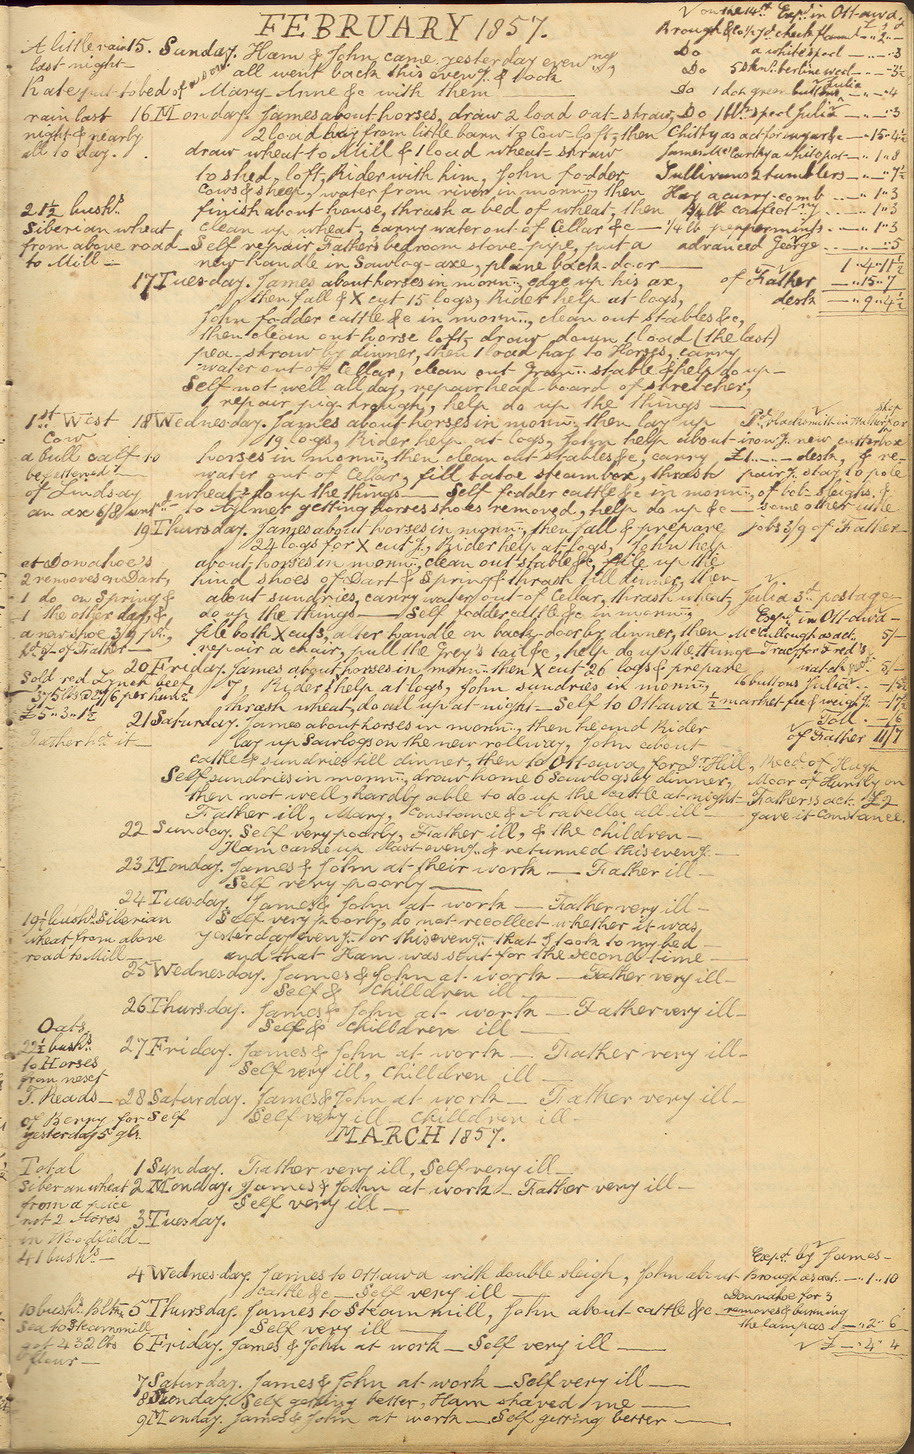 FEBRUARY 1857.
V on the 14th Expd in Ottawa,
A little rain
last night
15. Sunday. Ham & John came yesterday evening,
all went back this eveng. & took
Mary Anne &c with them
Kate put to bed of a son
Do a white spool — " — " 3
Do 5 skns. berline wool — " — " 3½
Do 1 doz green buttons Julia — " — " 4
rain last
night & nearly
all to day.
16 Monday. James about horses, draw 2 load oat-straw,
2 load hay from little barn to Cow-loft, then
draw wheat to Mill & 1 load wheat-straw
to shed, loft, Rider with him, John fodder
cows & sheep, water from river in mornn., then
finish about house, thrash a bed of wheat, then
clean up wheat, carry water out of Cellar &c
Self repair Fathers bedroom stove-pipe, put a
new handle in Sawlog-axe, plane back-door
Do 1 spool Julia — " — " 3
Sullivan 2 tumblers — " — " 7½
Hay a curry-comb — " 1 " 3
¼ lb confect. — " 1 " 3
¼ lb peppermints — " 1 " 3
advanced George — " — " 5
1 " 4 " 11½
of Father — " 15 " 7
desk — " 9 " 4½
21½ bushs.
Siberian wheat
from above road
to Mill
17 Tuesday. James about horses in mornn., edge up his ax,
then fall & X cut 15 logs, Rider help at logs,
John fodder cattle &c in mornn., clean out stables &c,
then clean out horse loft, draw down 1 load (the last)
pea-straw by dinner, then 1 load hay to Horses, carry
water out of Cellar, clean out Gran. stable & help do up
Self not well all day, repair head-board of stretcher,
repair pig-trough, help do up the things
1st West
Cow
a bull calf to
begottened
of Lindsay
an ax 6/8
18 Wednesday. James about horses in mornn. then lay up
19 logs, Rider help at logs, John help about
horses in mornn., then clean out stables &c, carry
water out of Cellar, fill tatoe steambox, thrash
wheat & do up the things — Self fodder cattle &c in mornn.,
to Aylmer getting horses shoes removed, help do up &c
iron f. new cutterbox
£1 — desk, & re-
pair f. stay to pole
of bob-sleighs, &
some other little
jobs 3/9 of Father
19 Thursday. James about horses in mornn., then fall & prepare
24 logs for X cut f., Rider help at logs, John help
about horses in mornn., clean out stable &c, file up the
hind shoes of Dart & Spring & thrash till dinner, then
about sundries, carry water out of Cellar, thrash wheat,
do up the things — Self fodder cattle &c in mornn.
file both X cuts, alter handle on back-door by dinner, then
repair a chair, pull the Grey's tail &c, help do up the things
at Donahoe's
2 removes on Dart,
1 do on Spring &
1 the other day, &
a new shoe 3/9
of Father
Julia 3d postage
Expd. in Ottawa
McCullough as act. 5/-
Tracy for Fred's
watch 5/-
20 Friday. James about horses in mornn. then X cut 26 logs & prepare
7, Rider help at logs, John sundries in mornn.,
thrash wheat, do all up at night — Self to Ottawa
Sold red Lynch beef
375 lbs 27/6 per hund.
£5 " 3 " 1½
Father hs. it
16 buttons Julia
market-fee & weigh f. — 17½
Toll — /6
of Father 11/7
21 Saturday. James about horses in mornn., then he and Rider
lay up Sawlogs on the new rollway, John about
cattle & sundries till dinner, then to Ottawa for Dr. Hill,
Self sundries in mornn., draw home 6 Sawlogs by dinner,
then not well, hardly able to do up the cattle at night
Father ill, Mary, Constance & Arabella all ill
Recd. of Hugh
Moor of Huntly on
Fathers act. £2
gave it Constance.
22 Sunday. Self very poorly, Father ill, & the children
Ham came up last eveng. & returned this eveng.
23 Monday. James & John at their work — Father ill
Self very poorly
24 Tuesday. James & John at work — Father very ill
Self very poorly, do not recollect whether it was
yesterday eveng. or this eveng. that I took to my bed
and that Ham was sent for the second time
19½ bushs. Siberian
wheat from above
road to Mill
25 Wednesday. James & John at work — Father very ill
Self & Chilldren ill
26 Thursday. James & John at work — Father very ill
Self & Chilldren ill
Oats
22½ bushs.
to Horses
from next
T. Reads
of Berry for Self
yesterday 5 gls.
27 Friday. James & John at work — Father very ill
Self very ill, chilldren ill
28 Saturday. James & John at work — Father very ill
Self very ill chilldren ill
MARCH 1857.
Total
Siberian wheat
from a peice
not 2 Acres
in Woodfield
41 bushs.
1 Sunday. Father very ill, Self very ill
2 Monday. James & John at work — Father very ill
Self very ill
3 Tuesday.
4 Wednesday. James to Ottawa with double sleigh, John about
cattle &c — Self very ill
Expd. by James
Brough as act. — " 1 " 10
Donnahoe for 3
removes & burning
the lampas — " 2 " 6
√ £ — " 4 " 4
10 bushs.
to Steammill
got 432 lbs
flour
5 Thursday. James to Steam mill, John about cattle &c
Self very ill
6 Friday. James & John at work — Self very ill
7 Saturday. James & John at work — Self very ill
8 Sunday. Self getting better, Ham shaved me
9 Monday. James & John at work — Self getting better